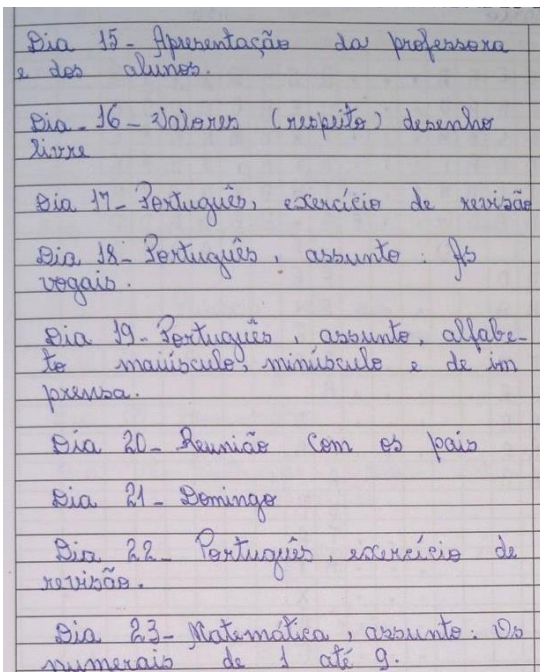 Dia 15 - Apresentação da professora
e dos alunos.
Dia - 16 - Valores (respeito) desenho
livre
Dia 17 - Português, exercício de revisão
Dia 18 - Português, assunto: As
vogais.
Dia 19 - Português, assunto, alfabe-
to maiúsculo, minúsculo e de im
prensa.
Dia 20 - Reunião com os pais
Dia 21 - Domingo
Dia 22 - Português, exercício de
revisão.
Dia 23 - Matemática, assunto: Os
numerais de 1 até 9.